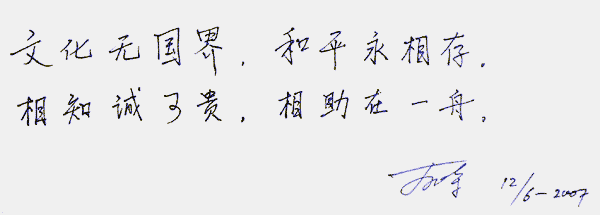 文化无国界.和平永相存.
相知诚可贵.相助在一舟.
12/6-2007